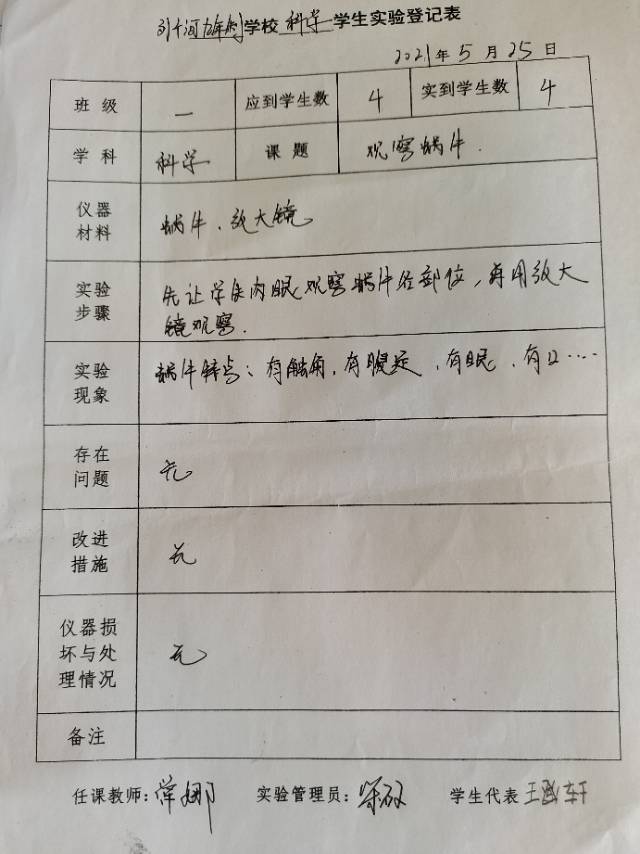 学校 科学 学生实验登记表
2021 年 5 月 25 日
班级 一 应到学生数 4 实到学生数 4
学科 科学 课题 观察蜗牛.
仪器材料 蜗牛、放大镜
实验步骤 先让学生肉眼观察蜗牛各部位,再用放大
镜观察.
实验现象 蜗牛特点:有触角,有腹足,有眼,有口……
存在问题 无
改进措施 无
仪器损坏与处理情况 无
备注
任课教师: 娜 实验管理员: 学生代表 王 轩